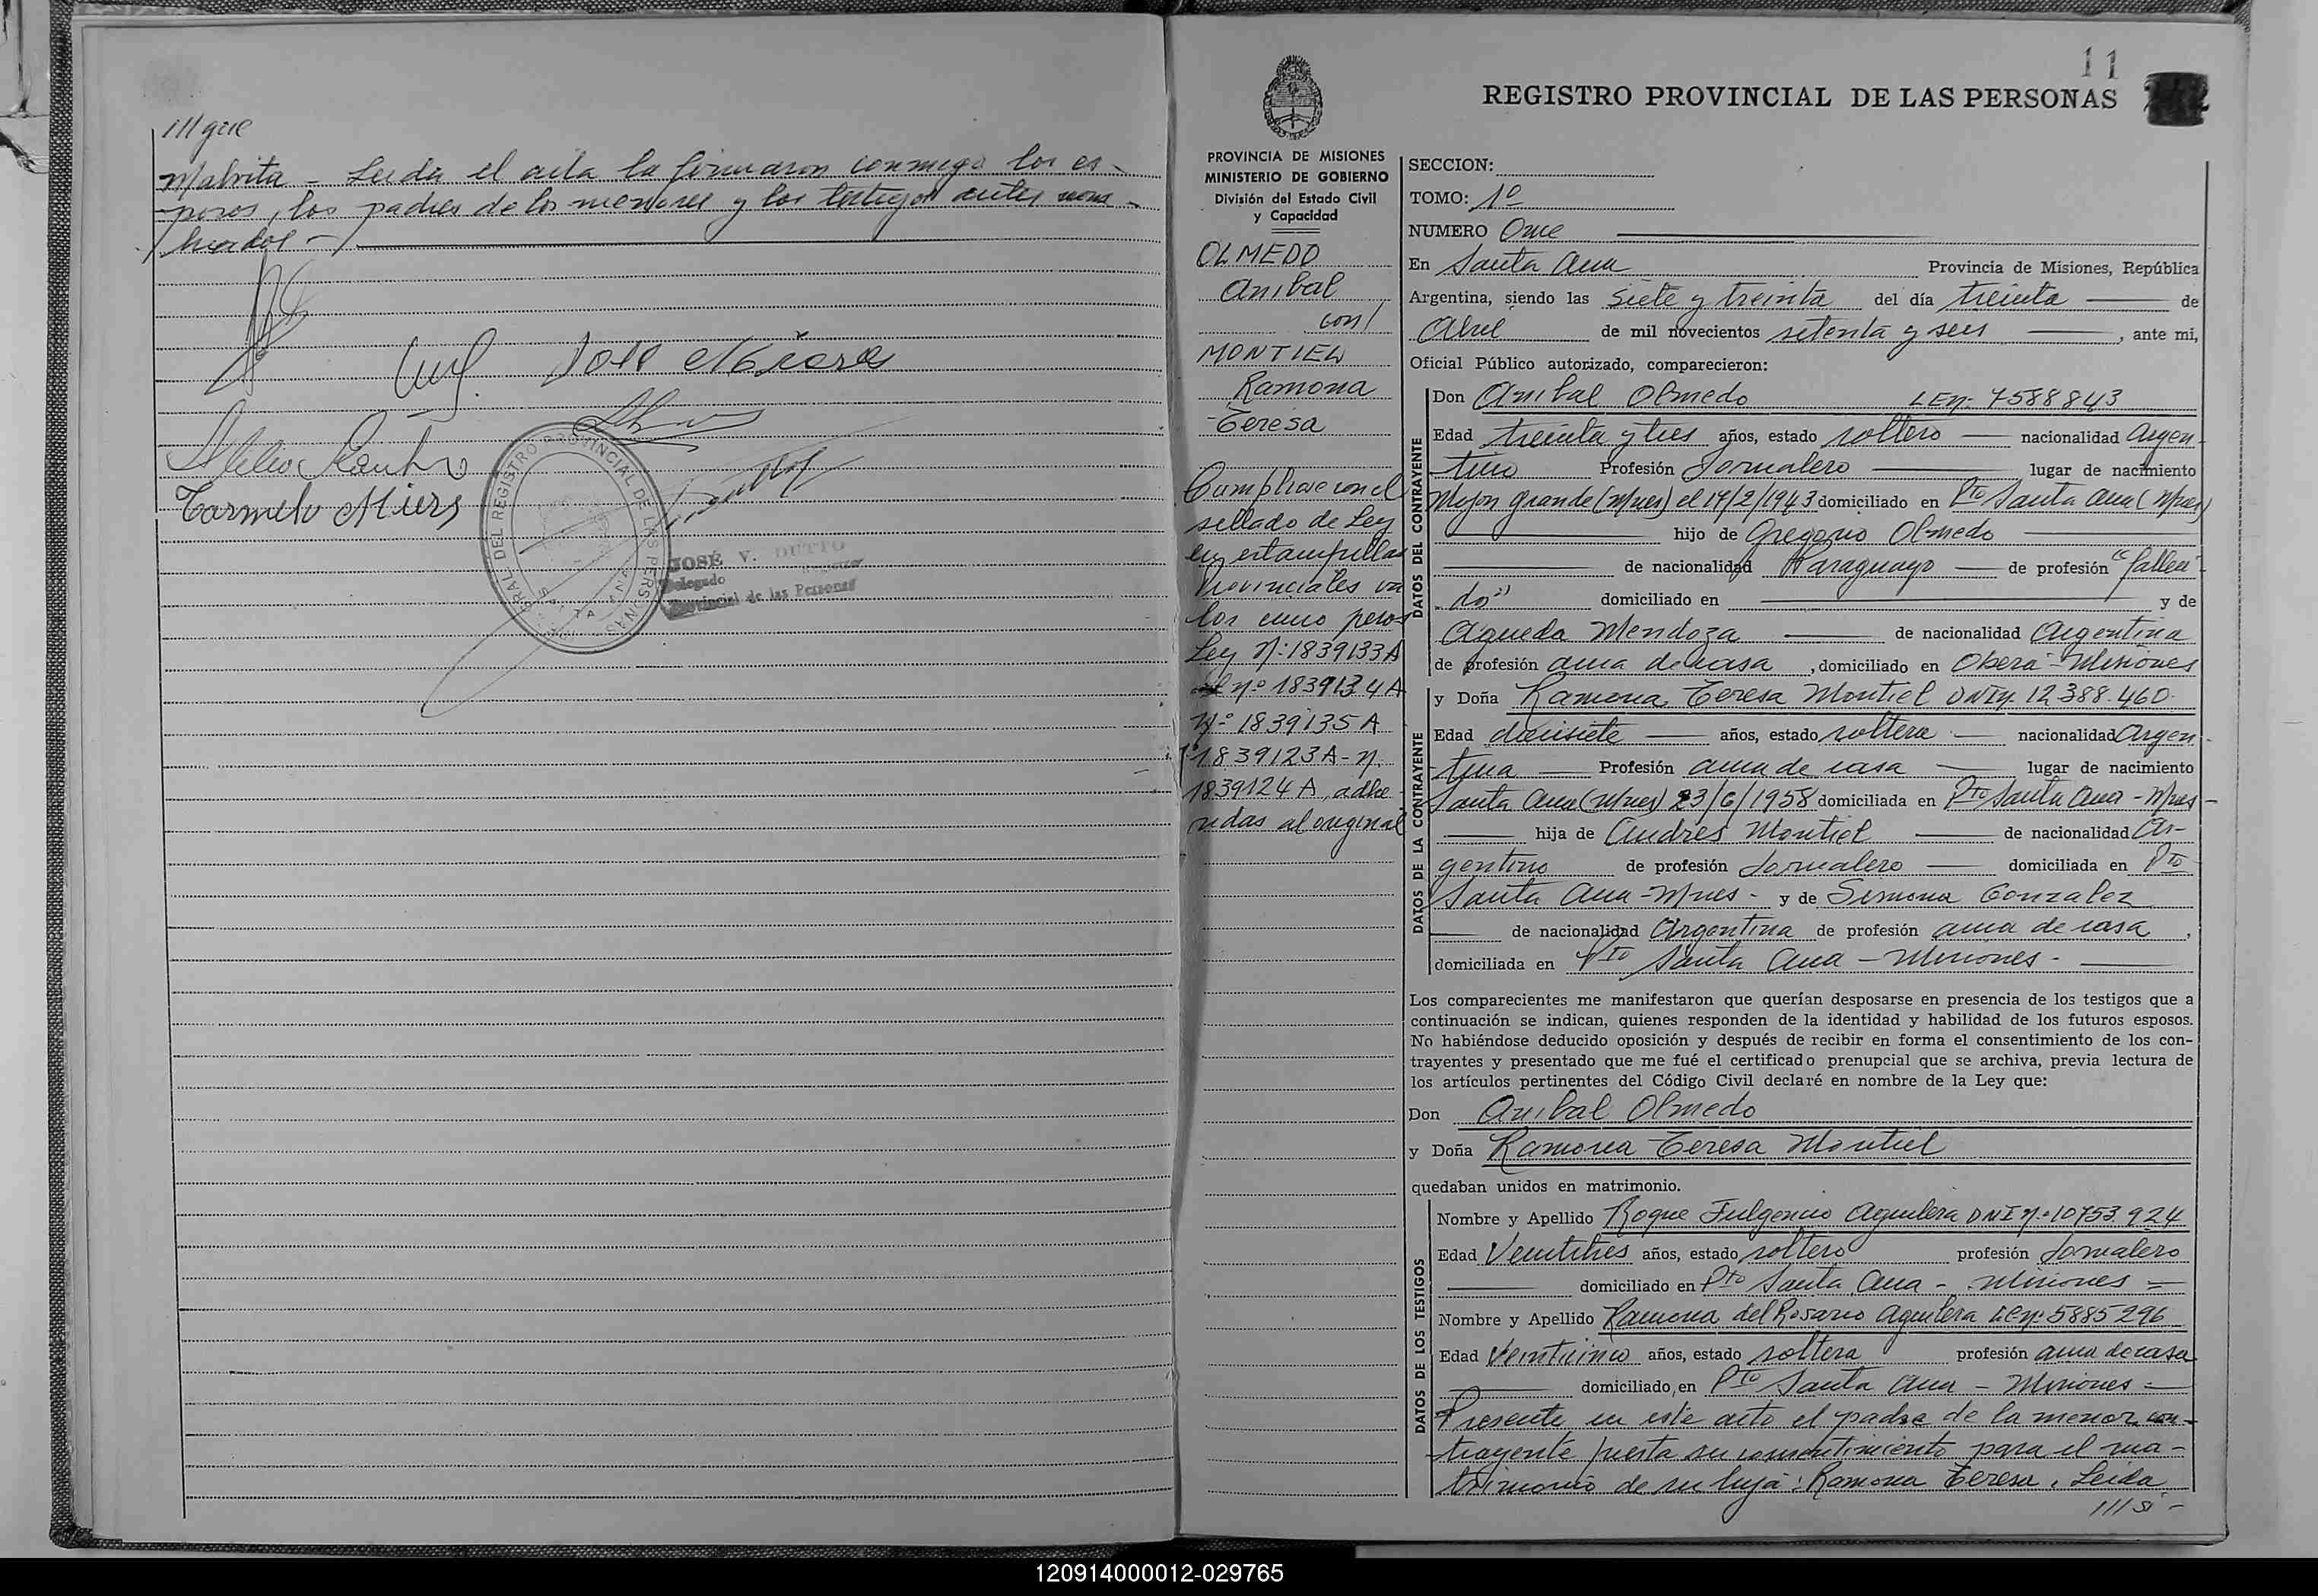 /// que
Malvita - Leida el acta la firmaron conmigo los es-
posos, los padres de los menores y los testigos antes nom-
brados -
Jose
Carmelo Miers
REGISTRO PROVINCIAL DE LAS PERSONAS
SANTA ANA
JOSÉ V. DUTTO
Delegado
Provincial de las Personas
11
REGISTRO PROVINCIAL DE LAS PERSONAS
PROVINCIA DE MISIONES
MINISTERIO DE GOBIERNO
División del Estado Civil
y Capacidad
OLMEDO
Anibal
con/
MONTIEL
Ramona
Teresa
Cumplose con el
sellado de Ley
en estampillas
Provinciales va
lor cinco pesos
Ley Nº: 1839133A
nº 1839134A
Nº 1839135A
1839123A - n.
1839124A, adhe
ridas al original
SECCION:
TOMO: 1º
NUMERO Once
En Santa Ana Provincia de Misiones, República
Argentina, siendo las Siete y treinta del día treinta de
Abril de mil novecientos setenta y seis , ante mi,
Oficial Público autorizado, comparecieron:
DATOS DEL CONTRAYENTE
Don Anibal Olmedo LEnº 7588843
Edad treinta y tres años, estado soltero nacionalidad Argen-
tino Profesión Jornalero lugar de nacimiento
Mojon grande (Mnes) el 19/2/1943 domiciliado en Pto Santa Ana (Mnes)
hijo de Gregorio Olmedo
de nacionalidad Paraguayo de profesión "falleci-
do" domiciliado en y de
Agueda Mendoza de nacionalidad Argentina
de profesión ama de casa , domiciliado en Oberá - Misiones
DATOS DE LA CONTRAYENTE
y Doña Ramona Teresa Montiel DNIn. 12.388.460
Edad diecisiete años, estado soltera nacionalidad Argen-
tina Profesión ama de casa lugar de nacimiento
Santa Ana (Mnes) 23/6/1958 domiciliada en Pto Santa Ana - Mnes -
hija de Andres Montiel de nacionalidad Ar-
gentino de profesión Jornalero domiciliada en Pto
Santa Ana - Mnes - y de Simona Gonzalez
de nacionalidad Argentina de profesión ama de casa ,
domiciliada en Pto Santa Ana - Misiones -
Los comparecientes me manifestaron que querían desposarse en presencia de los testigos que a
continuación se indican, quienes responden de la identidad y habilidad de los futuros esposos.
No habiéndose deducido oposición y después de recibir en forma el consentimiento de los con-
trayentes y presentado que me fué el certificado prenupcial que se archiva, previa lectura de
los artículos pertinentes del Código Civil declaré en nombre de la Ley que:
Don Anibal Olmedo
y Doña Ramona Teresa Montiel
quedaban unidos en matrimonio.
DATOS DE LOS TESTIGOS
Nombre y Apellido Roque Fulgencio Aguilera DNI Nº 10753.924
Edad Veintitres años, estado soltero profesión Jornalero
domiciliado en Pto Santa Ana - Misiones =
Nombre y Apellido Ramona del Rosario Aguilera LCnº 5885296
Edad Veinticinco años, estado soltera profesión ama de casa
domiciliado, en Pto Santa Ana - Misiones =
Presente en este acto el padre de la menor con-
trayente presta su consentimiento para el ma-
trimonio de su hija: Ramona Teresa. Leida
/// si -
120914000012-029765